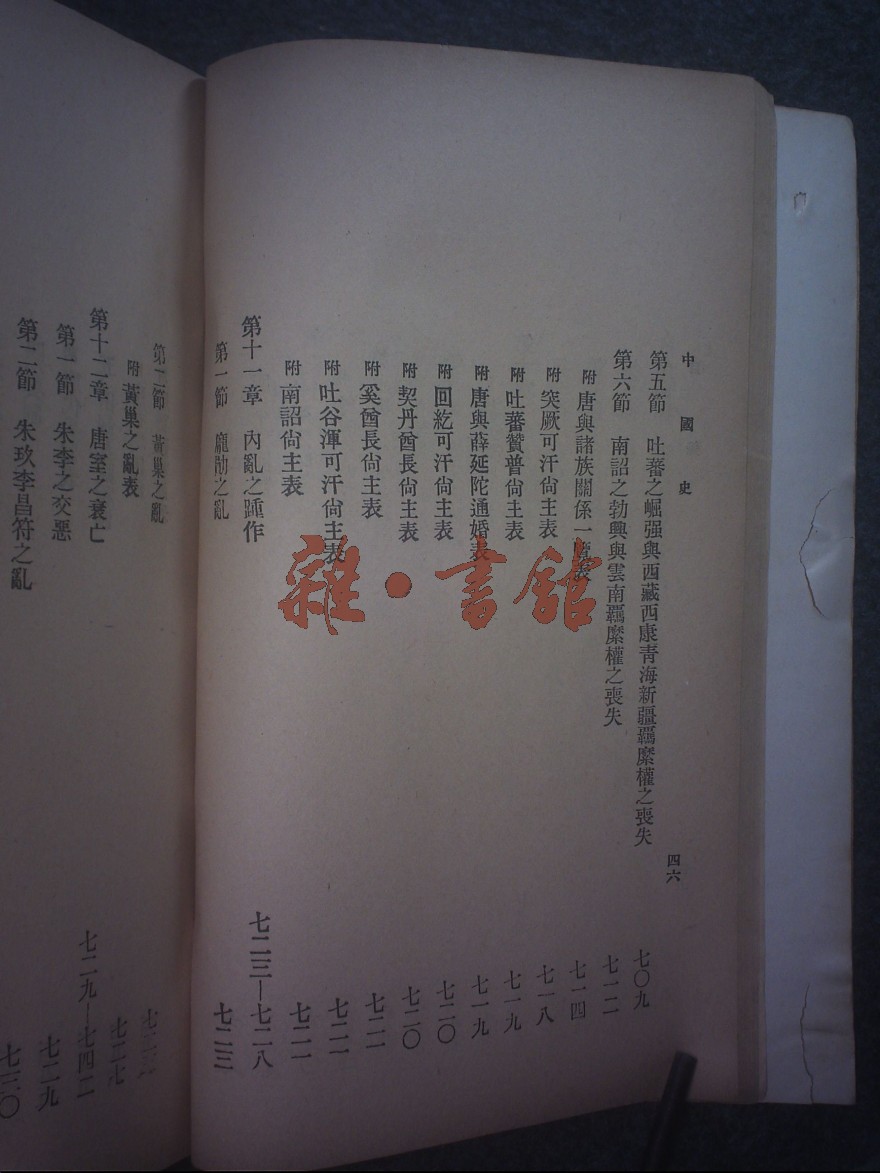 中國史
四六
第五節 吐蕃之崛强與西藏西康青海新疆羈縻權之喪失 七〇九
第六節 南詔之勃興與雲南羈縻權之喪失 七一二
附 唐與諸族關係一覽表 七一四
附 突厥可汗尙主表 七一八
附 吐蕃贊普尙主表 七一九
附 唐與薛延陀通婚表 七一九
附 回紇可汗尙主表 七二〇
附 契丹酋長尙主表 七二〇
附 奚酋長尙主表 七二一
附 吐谷渾可汗尙主表 七二一
附 南詔尙主表 七二一
第十一章 內亂之踵作 七二三—七二八
第一節 龐勛之亂 七二三
第二節 黃巢之亂
附 黃巢之亂表 七二七
第十二章 唐室之衰亡 七二九—七四二
第一節 朱李之交惡 七二九
第二節 朱玫李昌符之亂 七三〇
雜·書館